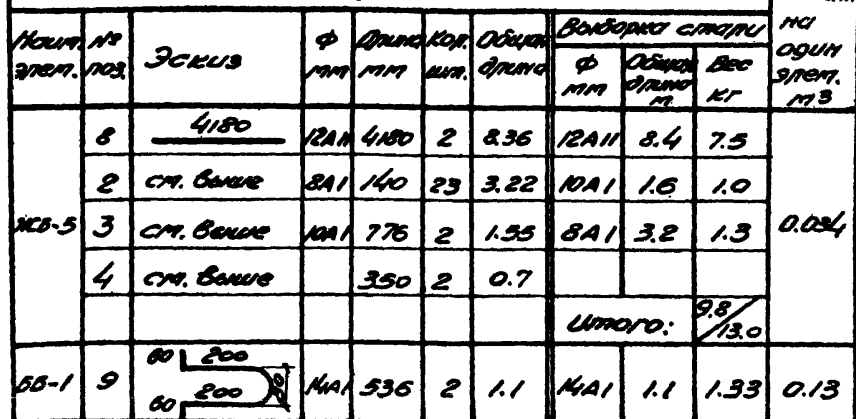 Наим. элем. № поз. Эскиз Ф мм Длина мм Кол. шт. Общая длина Выборка стали на один элем. м3
Ф мм Общая длина м. Вес кг
ЖСБ-5 8 4180 12АII 4180 2 8.36 12АII 8.4 7.5 0.034
2 см. выше 8АI 140 23 3.22 10АI 1.6 1.0
3 см. выше 10АI 776 2 1.55 8АI 3.2 1.3
4 см. выше 350 2 0.7
Итого: 9.8/13.0
ББ-1 9 60 200 200 60 14АI 536 2 1.1 14АI 1.1 1.33 0.13